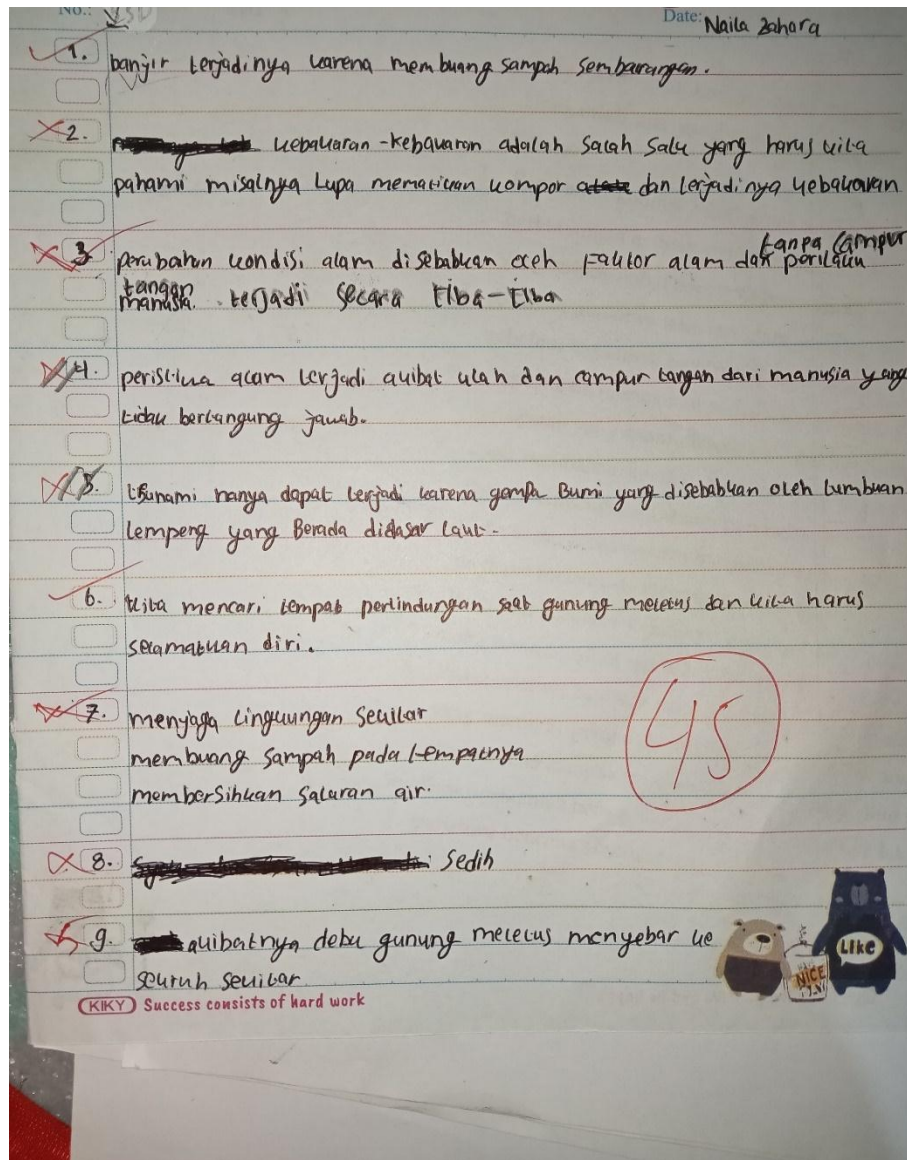 No.:
Date: Naila Zahara
1. banjir terjadinya karena membuang sampah sembarangan.
2. kebakaran-kebakaran adalah salah satu yang harus kita
pahami misalnya lupa mematikan kompor dan terjadinya kebakaran
3. perubahan kondisi alam disebabkan oleh faktor alam dan tanpa campur
tangan manusia. terjadi secara tiba-tiba
4. peristiwa alam terjadi akibat ulah dan campur tangan dari manusia yang
tidak bertangung jawab.
5. tsunami hanya dapat terjadi karena gempa Bumi yang disebabkan oleh tumbukan
lempeng yang Berada didasar laut.
6. kita mencari tempat perlindungan saat gunung meletus dan kita harus
selamatkan diri.
7. menjaga lingkungan sekitar
45
membuang sampah pada tempatnya
membersihkan saluran air.
8. sedih
9. akibatnya debu gunung meletus menyebar ke
seluruh sekitar
LIKE
NICE
KIKY Success consists of hard work